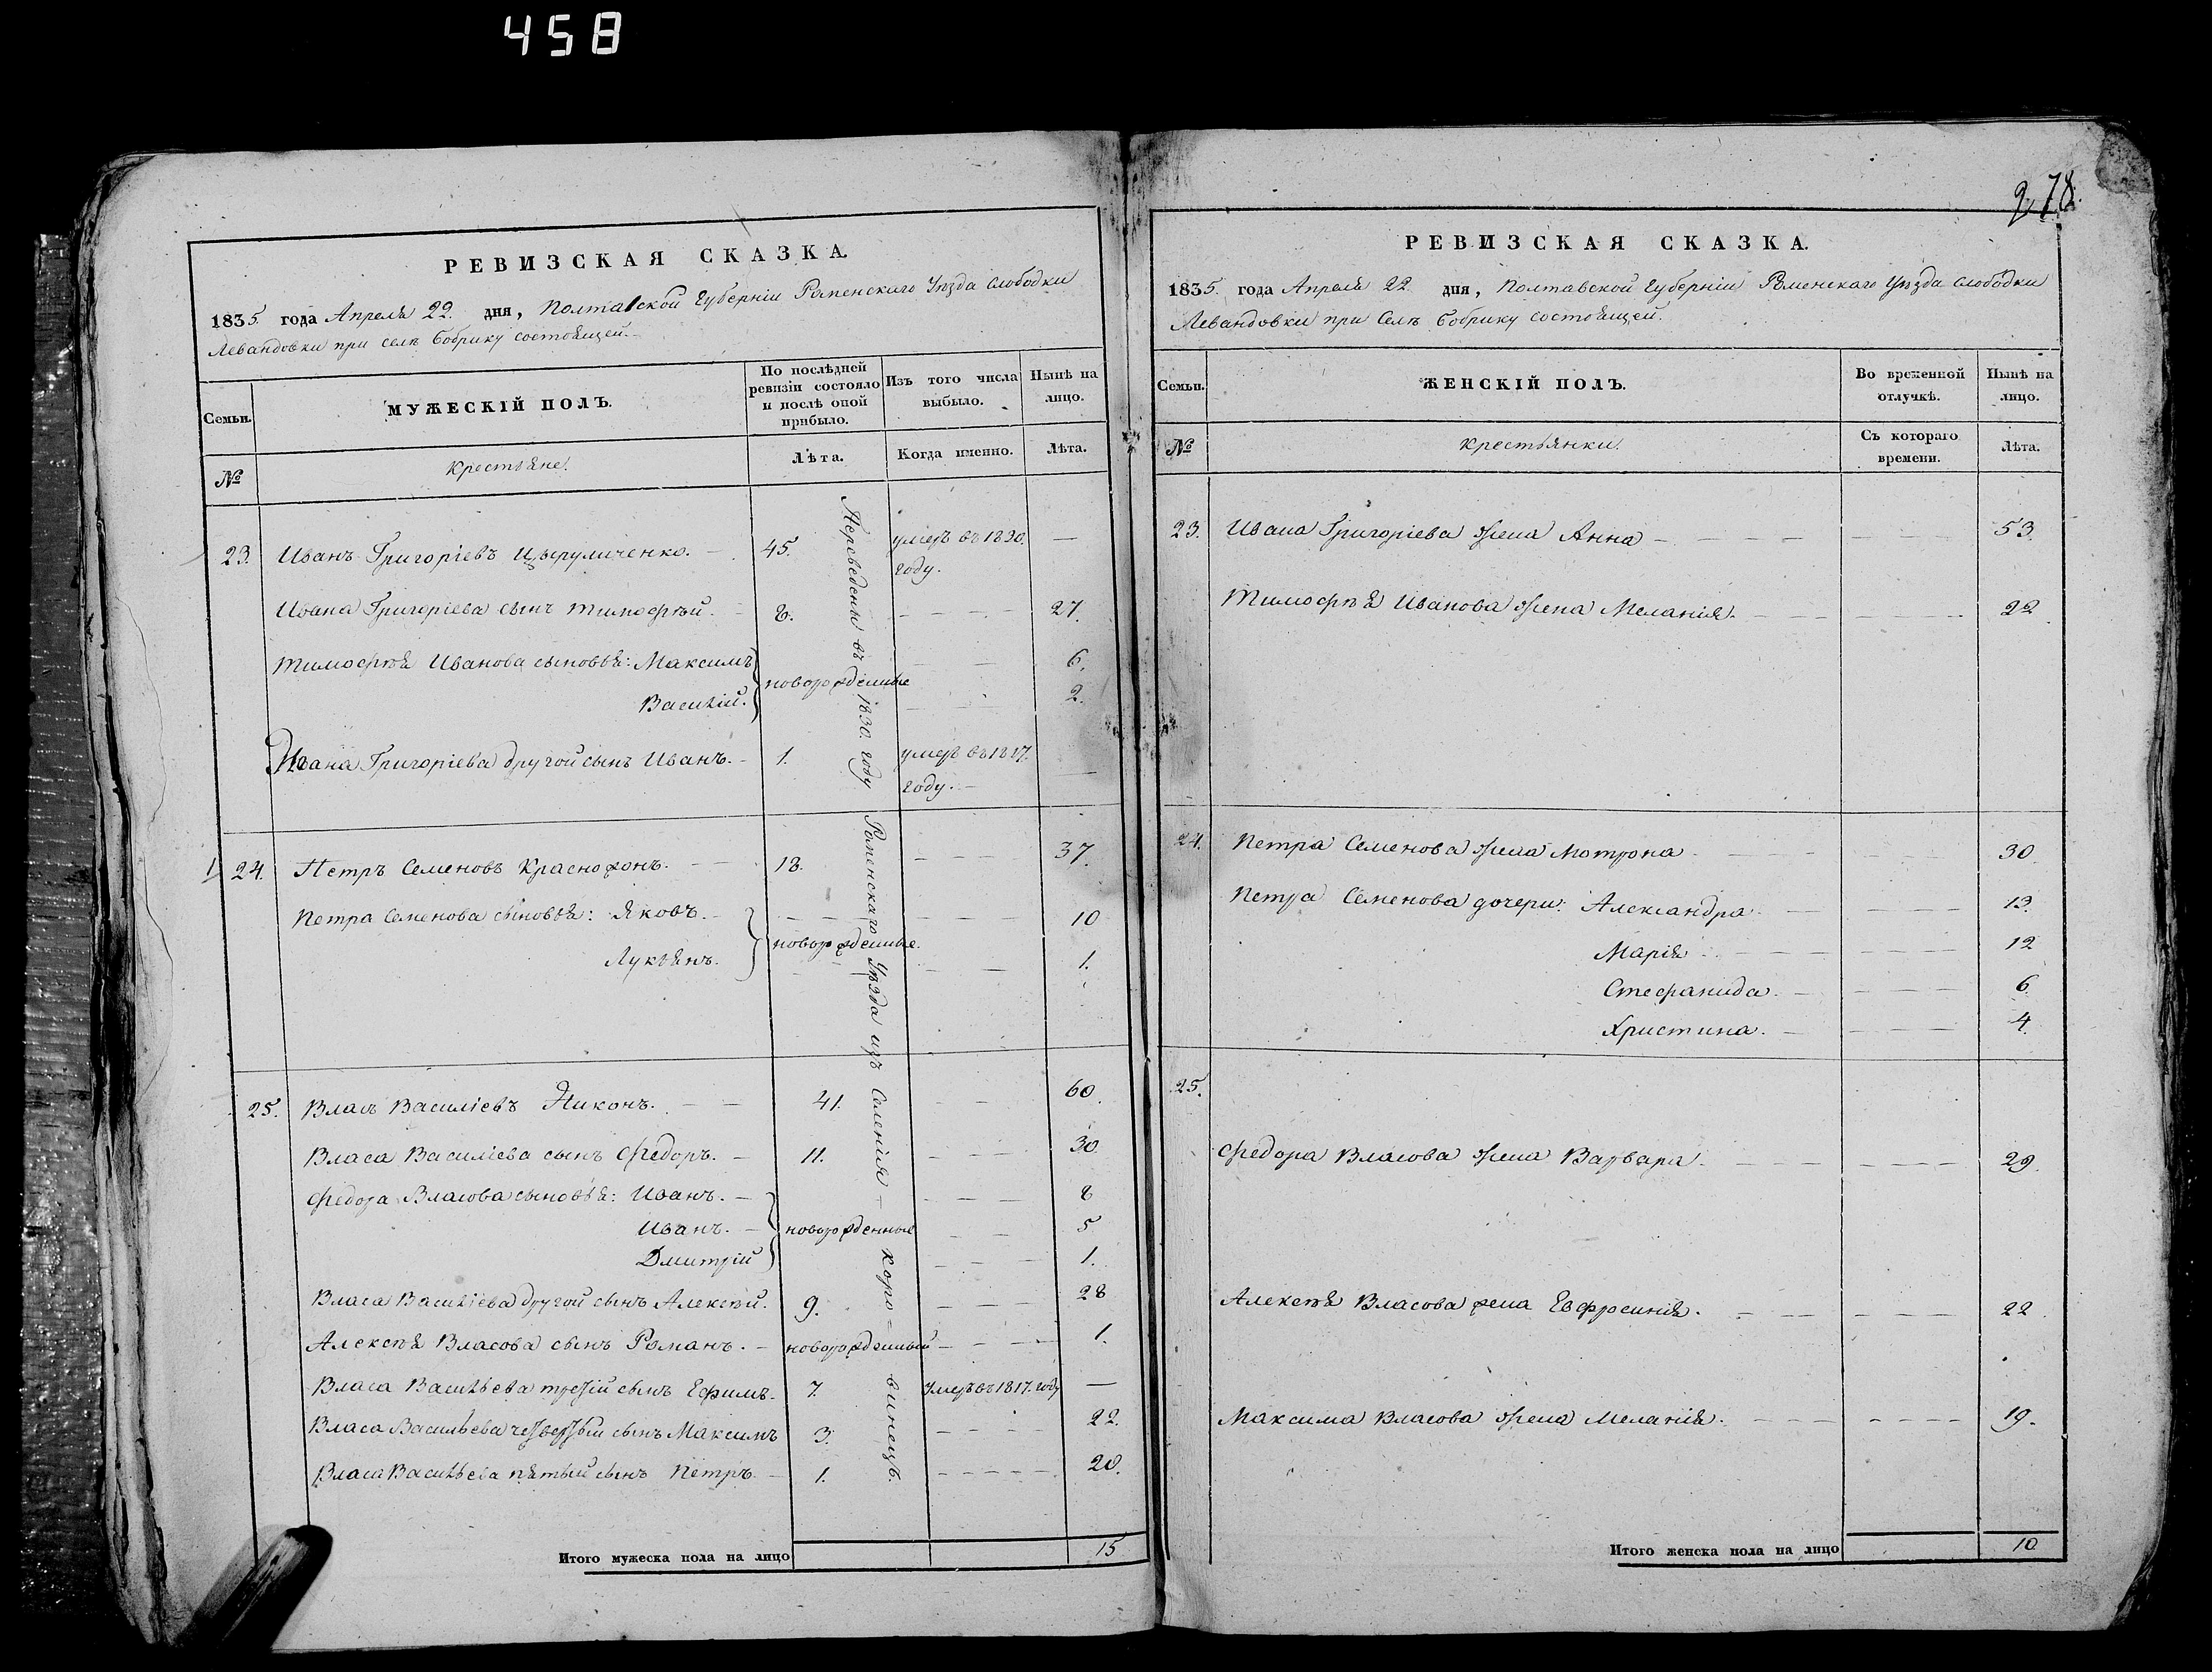 458
278.
РЕВИЗСКАЯ СКАЗКА.
1835. года Апреля 22. дня, Полтавской Губерніи Роменскаго Уѣзда Слободки
Левандовки при селѣ Бобрику состоящей.
Семьи.
МУЖЕСКІЙ ПОЛЪ.
По послѣдней ревизіи состояло и послѣ оной прибыло.
Изъ того числа выбыло.
Нынѣ на лицо.
№
Крестьяне.
Лѣта.
Когда именно.
Лѣта.
23. Иванъ Григоріевъ Цыруличенко. 45. умеръ въ 1830. году. —
Ивана Григоріева сынъ Тимофѣй. 8. 27.
Тимофѣя Иванова сыновья: Максимъ 6.
новорожденные
Василій. 2.
Ивана Григоріева другой сынъ Иванъ. 1. умеръ въ 1817. году. —
24. Петръ Семеновъ Краснофонъ. 18. 37.
Петра Семенова сыновья: Яковъ. 10
новорожденные.
Лукьянъ. 1.
25. Власъ Василіевъ Никонъ. 41. 60.
Власа Василіева сынъ Федоръ. 11. 30.
Федора Власова сыновья: Иванъ. 8
Иванъ. новорожденные 5
Дмитрій 1.
Власа Василіева другой сынъ Алексѣй. 9. 28
Алексѣя Власова сынъ Романъ. новорожденный 1.
Власа Васильева третій сынъ Ефимъ. 7. умеръ въ 1817. году —
Власа Васильева четвертый сынъ Максимъ 3. 22.
Власа Васильева пятый сынъ Петръ. 1. 20.
Переведены въ 1830. году Роменскаго Уѣзда изъ Селенія Коро=винецъ.
Итого мужеска пола на лицо 15
РЕВИЗСКАЯ СКАЗКА.
1835. года Апреля 22. дня, Полтавской Губерніи Роменскаго Уѣзда Слободки
Левандовки при Селѣ Бобрику состоящей.
Семьи.
ЖЕНСКІЙ ПОЛЪ.
Во временной отлучкѣ.
Нынѣ на лицо.
№
Крестьянки.
Съ котораго времени.
Лѣта.
23. Ивана Григоріева жена Анна 53.
Тимофѣя Иванова жена Меланія. 22
24. Петра Семенова жена Мотрона 30.
Петра Семенова дочери: Александра 13.
Марія 12
Стефанида. 6.
Христина. 4.
25.
Федора Власова жена Варвара. 29.
Алексѣя Власова жена Евфросинія. 22
Максима Власова жена Меланія. 19.
Итого женска пола на лицо 10.